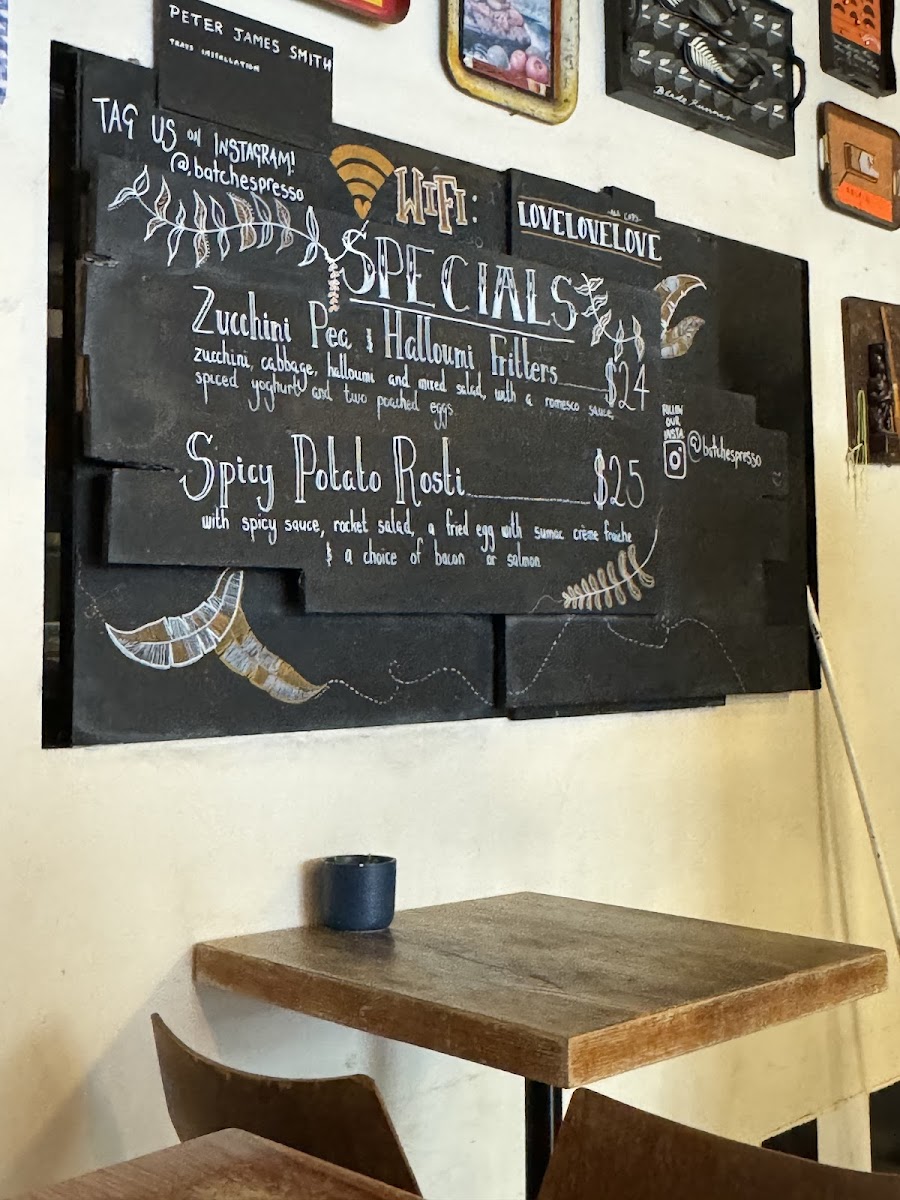 PETER JAMES SMITH
TRAYS INSTALLATION
TAG US ON INSTAGRAM!
@batchespresso
WIFI:
-ALL CAPS-
LOVELOVELOVE
SPECIALS
Zucchini Pea & Halloumi Fritters $24
zucchini, cabbage, halloumi and mixed salad, with a romesco sauce,
spiced yoghurt and two poached eggs
Spicy Potato Rosti $25
with spicy sauce, rocket salad, a fried egg with sumac crème fraiche
& a choice of bacon or salmon
FOLLOW
OUR
INSTA
@batchespresso
Blade Runner